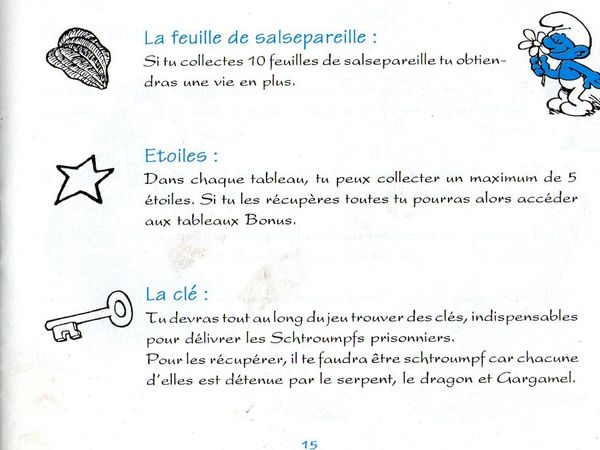 La feuille de salsepareille :
Si tu collectes 10 feuilles de salsepareille tu obtien-
dras une vie en plus.
Etoiles :
Dans chaque tableau, tu peux collecter un maximum de 5
étoiles. Si tu les récupères toutes tu pourras alors accéder
aux tableaux Bonus.
La clé :
Tu devras tout au long du jeu trouver des clés, indispensables
pour délivrer les Schtroumpfs prisonniers.
Pour les récupérer, il te faudra être schtroumpf car chacune
d'elles est détenue par le serpent, le dragon et Gargamel.
15